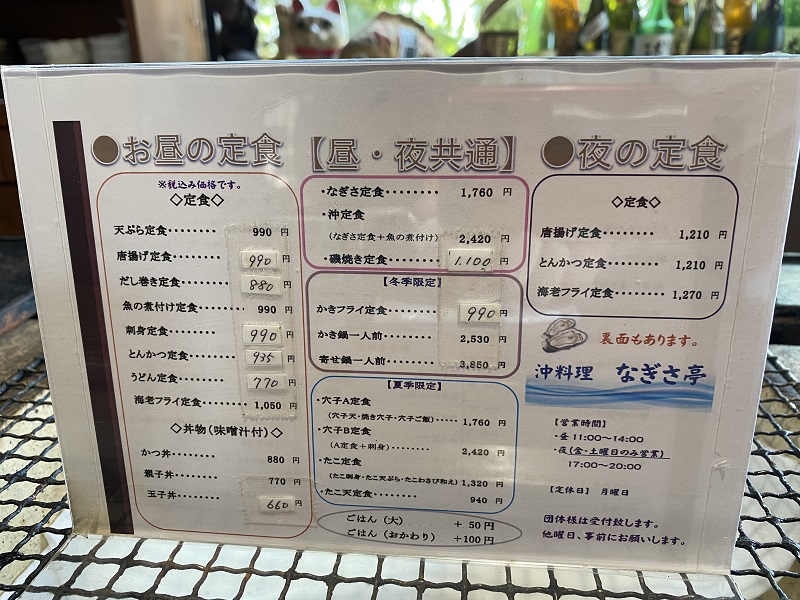 ●お昼の定食
※税込み価格です。
◇定食◇
天ぷら定食‥‥‥‥ 990 円
唐揚げ定食‥‥‥‥ 990 円
だし巻き定食‥‥‥‥ 880 円
魚の煮付け定食‥‥‥ 990 円
刺身定食‥‥‥‥ 990 円
とんかつ定食‥‥‥‥ 935 円
うどん定食‥‥‥‥ 770 円
海老フライ定食‥‥‥‥ 1,050 円
◇丼物(味噌汁付)◇
かつ丼‥‥‥‥ 880 円
親子丼‥‥‥‥ 770 円
玉子丼‥‥‥‥ 660 円
【昼・夜共通】
・なぎさ定食‥‥‥‥ 1,760 円
・沖定食
(なぎさ定食+魚の煮付け) 2,420 円
・磯焼き定食‥‥‥‥ 1,100 円
【冬季限定】
かきフライ定食‥‥‥‥ 990 円
かき鍋一人前‥‥‥‥ 2,530 円
寄せ鍋一人前‥‥‥‥ 3,850 円
【夏季限定】
・穴子A定食
(穴子天・焼き穴子・穴子ご飯)‥‥‥ 1,760 円
・穴子B定食
(A定食+刺身)‥‥‥‥ 2,420 円
・たこ定食
(たこ刺身・たこ天ぷら・たこわさび和え) 1,320 円
・たこ天定食‥‥‥‥ 940 円
ごはん(大) + 50円
ごはん(おかわり) +100円
●夜の定食
◇定食◇
唐揚げ定食‥‥‥‥ 1,210 円
とんかつ定食‥‥‥‥ 1,210 円
海老フライ定食‥‥‥‥ 1,270 円
裏面もあります。
沖料理 なぎさ亭
【営業時間】
・昼 11:00〜14:00
・夜(金・土曜日のみ営業)
17:00〜20:00
【定休日】 月曜日
団体様は受付致します。
他曜日、事前にお願いします。